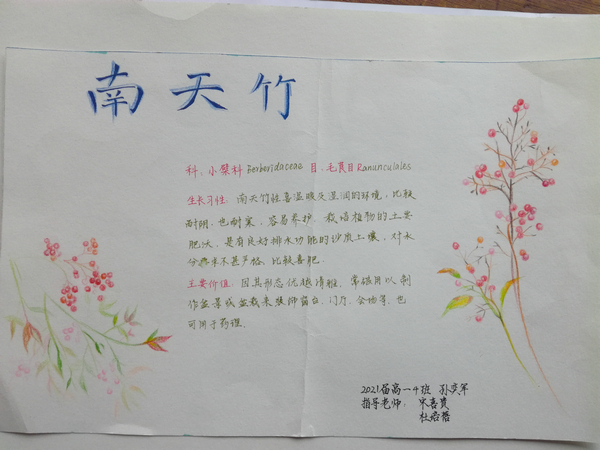 南天竹
科：小檗科 Berberidaceae 目：毛茛目 Ranunculales
生长习性：南天竹性喜温暖及湿润的环境，比较
耐阴，也耐寒，容易养护。栽培植物的土要
肥沃，是有良好排水功能的沙质土壤，对水
分要求不甚严格，比较喜肥。
主要价值：因其形态优越清雅，常被用以制
作盆景或盆栽来装饰窗台、门厅、会场等，也
可用于药理。
2021届高一4班 孙奕军
指导老师：宋喜贵
杜